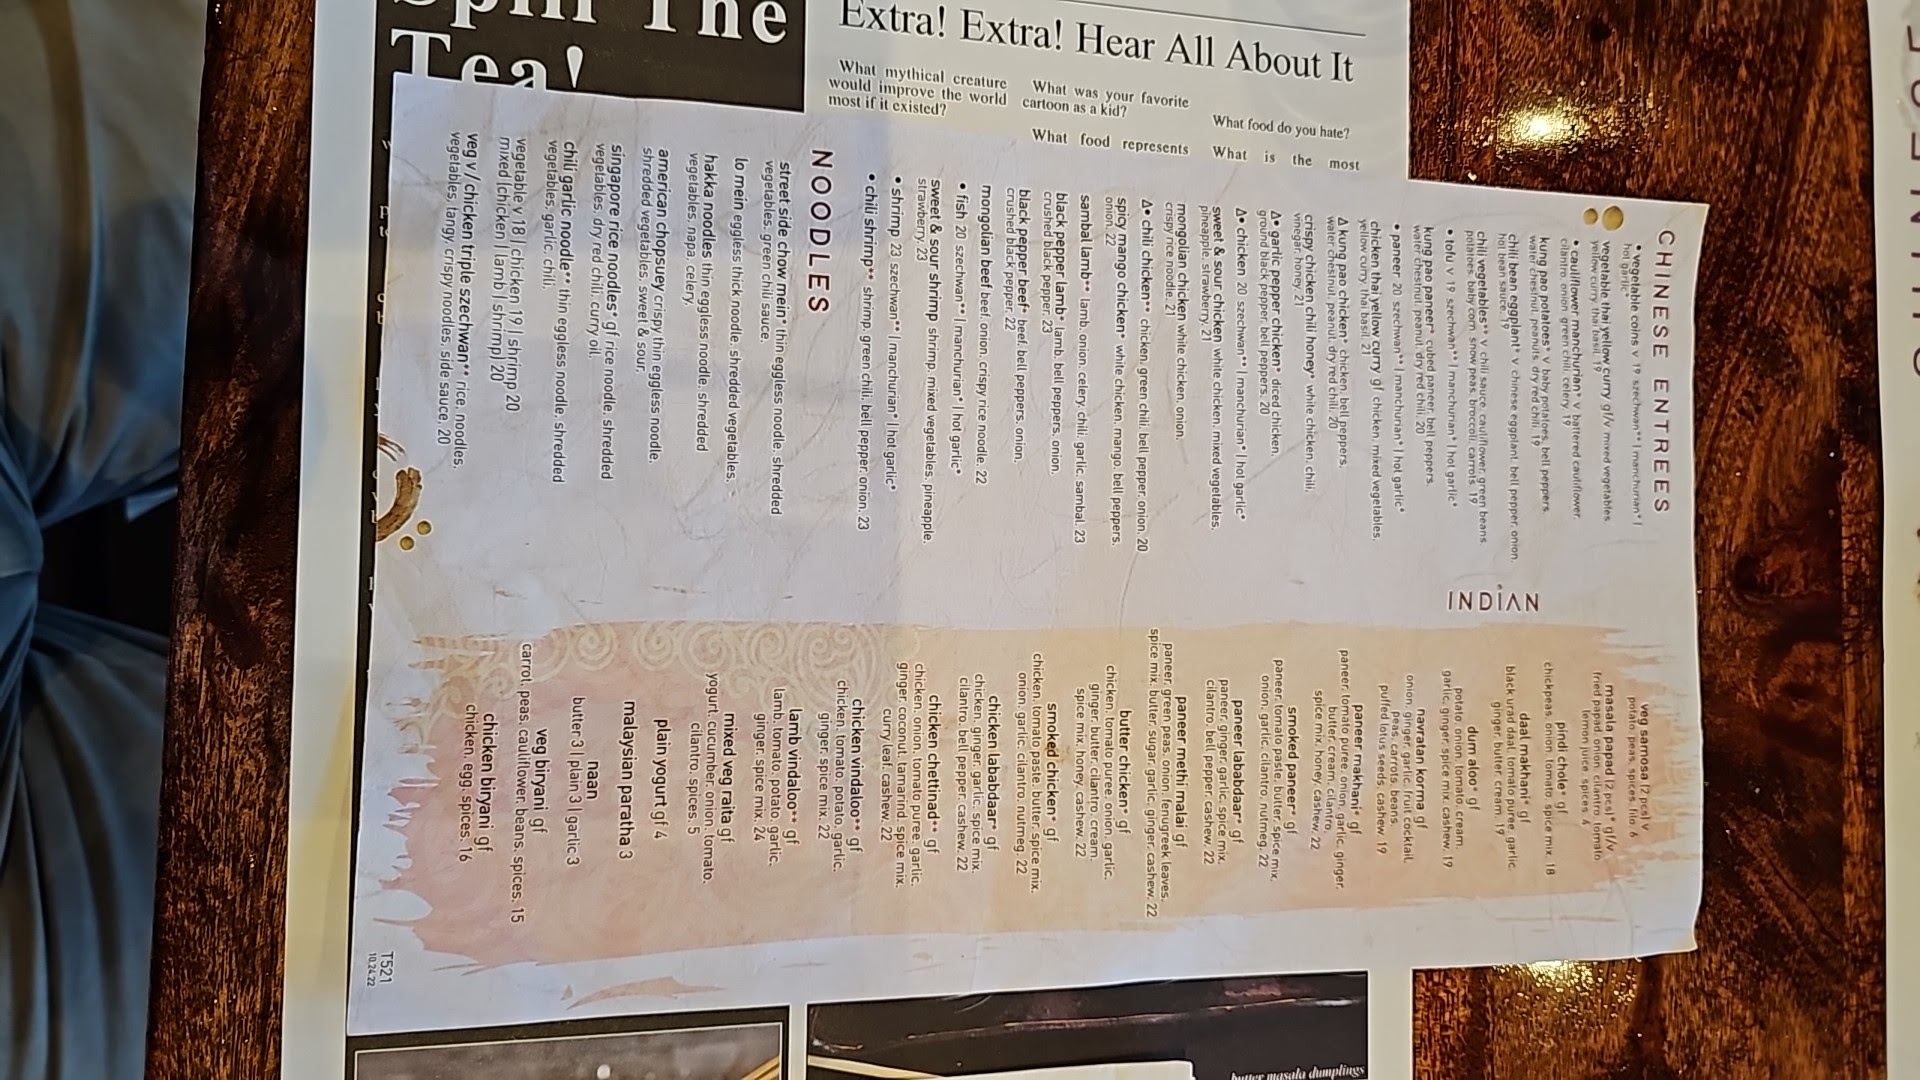 Spill The
Tea!
Extra! Extra! Hear All About It
What mythical creature
would improve the world
most if it existed?
What was your favorite
cartoon as a kid?
What food do you hate?
What food represents
What is the most
CHINESE ENTREES
• vegetable coins v 19 szechwan** | manchurian* |
hot garlic*
vegetable thai yellow curry gf/v mixed vegetables.
yellow curry. thai basil. 19
• cauliflower manchurian* v battered cauliflower.
cilantro. onion. green chili. celery. 19
kung pao potatoes* v baby potatoes. bell peppers.
water chestnut. peanuts. dry red chili. 19
chili bean eggplant* v chinese eggplant. bell pepper. onion.
hot bean sauce. 19
chili vegetables** v chili sauce. cauliflower. green beans.
potatoes. baby corn. snow peas. broccoli. carrots. 19
• tofu v 19 szechwan** | manchurian* | hot garlic*
kung pao paneer* cubed paneer. bell peppers.
water chestnut. peanut. dry red chili. 20
• paneer 20 szechwan** | manchurian* | hot garlic*
chicken thai yellow curry gf chicken. mixed vegetables.
yellow curry. thai basil. 21
Δ kung pao chicken* chicken. bell peppers.
water chestnut. peanut. dry red chili. 20
crispy chicken chili honey* while chicken. chili.
vinegar. honey. 21
Δ• garlic pepper chicken* diced chicken.
ground black pepper. bell peppers. 20
Δ• chicken 20 szechwan** | manchurian* | hot garlic*
sweet & sour chicken white chicken. mixed vegetables.
pineapple. strawberry. 21
mongolian chicken white chicken. onion.
crispy rice noodle. 21
Δ• chili chicken** chicken. green chili. bell pepper. onion. 20
spicy mango chicken* white chicken. mango. bell peppers.
onion. 22
sambal lamb** lamb. onion. celery. chili. garlic. sambal. 23
black pepper lamb* lamb. bell peppers. onion.
crushed black pepper. 23
black pepper beef* beef. bell peppers. onion.
crushed black pepper. 22
mongolian beef beef. onion. crispy rice noodle. 22
• fish 20 szechwan** | manchurian* | hot garlic*
sweet & sour shrimp shrimp. mixed vegetables. pineapple.
strawberry. 23
• shrimp 23 szechwan** | manchurian* | hot garlic*
• chili shrimp** shrimp. green chili. bell pepper. onion. 23
NOODLES
street side chow mein* thin eggless noodle. shredded
vegetables. green chili sauce.
lo mein eggless thick noodle. shredded vegetables.
hakka noodles thin eggless noodle. shredded
vegetables. napa. celery.
american chopsuey crispy thin eggless noodle.
shredded vegetables. sweet & sour.
singapore rice noodles* gf rice noodle. shredded
vegetables. dry red chili. curry oil.
chili garlic noodle** thin eggless noodle. shredded
vegetables. garlic. chili.
vegetable v 18 | chicken 19 | shrimp 20
mixed (chicken | lamb | shrimp) 20
veg v / chicken triple szechwan** rice. noodles.
vegetables. tangy. crispy noodles. side sauce. 20
INDIAN
veg samosa (2 pcs) v
potato. peas. spices. filo. 6
masala papad (2 pcs)* gf/v
fried papad. onion. cilantro. tomato.
lemon juice. spices. 4
pindi chole* gf
chickpeas. onion. tomato. spice mix. 18
daal makhani* gf
black urad daal. tomato puree. garlic.
ginger. butter. cream. 19
dum aloo* gf
potato. onion. tomato. cream.
garlic. ginger. spice mix. cashew. 19
navratan korma gf
onion. ginger. garlic. fruit cocktail.
peas. carrots. beans.
puffed lotus seeds. cashew. 19
paneer makhani* gf
paneer. tomato puree. onion. garlic. ginger.
butter. cream. cilantro.
spice mix. honey. cashew. 22
smoked paneer* gf
paneer. tomato paste. butter. spice mix.
onion. garlic. cilantro. nutmeg. 22
paneer lababdaar* gf
paneer. ginger. garlic. spice mix.
cilantro. bell pepper. cashew. 22
paneer methi malai gf
paneer. green peas. onion. fenugreek leaves.
spice mix. butter. sugar. garlic. ginger. cashew. 22
butter chicken* gf
chicken. tomato puree. onion. garlic.
ginger. butter. cilantro. cream.
spice mix. honey. cashew. 22
smoked chicken* gf
chicken. tomato paste. butter. spice mix.
onion. garlic. cilantro. nutmeg. 22
chicken lababdaar* gf
chicken. ginger. garlic. spice mix.
cilantro. bell pepper. cashew. 22
chicken chettinad** gf
chicken. onion. tomato puree. garlic.
ginger. coconut. tamarind. spice mix.
curry leaf. cashew. 22
chicken vindaloo** gf
chicken. tomato. potato. garlic.
ginger. spice mix. 22
lamb vindaloo** gf
lamb. tomato. potato. garlic.
ginger. spice mix. 24
mixed veg raita gf
yogurt. cucumber. onion. tomato.
cilantro. spices. 5
plain yogurt gf 4
malaysian paratha 3
naan
butter 3 | plain 3 | garlic 3
veg biryani gf
carrot. peas. cauliflower. beans. spices. 15
chicken biryani gf
chicken. egg. spices. 16
T521
10.24.22
butter masala dumplings